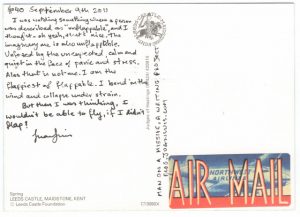 #040 September 9th 2011
I was watching something where a person
was described as "unflappable", and I
thought - oh yeah, that's nice. The
imaginary me is also unflappable.
Unfazed by the unexpected, calm and
quiet in the face of panic and stress.
Alas that is not me. I am the
flappiest of flappable. I bend in the
wind and collapse under strain.
But then I was thinking, I
wouldn't be able to fly, if I didn't
flap!
Spring
LEEDS CASTLE, MAIDSTONE, KENT
© Leeds Castle Foundation
MAN ON A MISSIVE, A WRITING PROJECT
AIR MAIL
NORTHWEST
AIRLINES